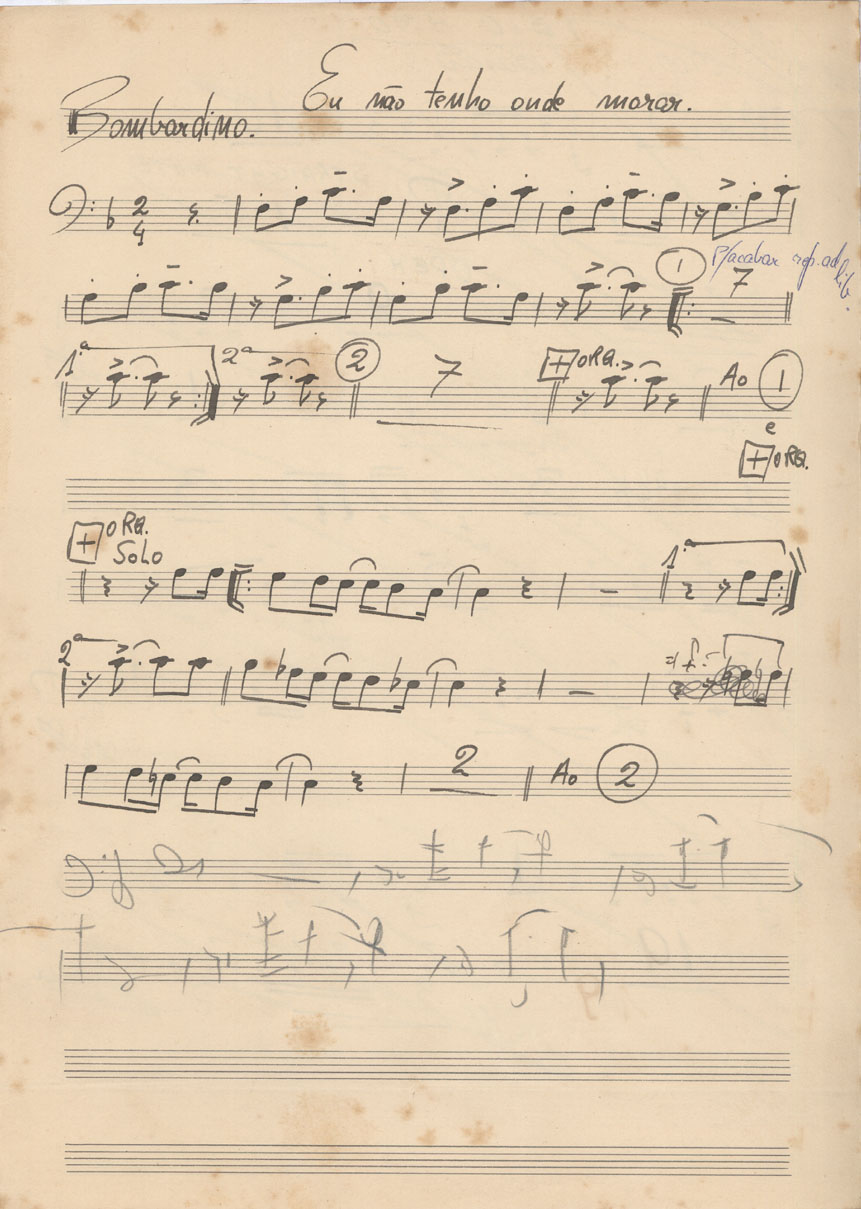 Eu não tenho onde morar.
Bombardino.
2
4
1 P/acabar rep. ad lib.
7
1ª 2ª 2 7 + ORQ. Ao 1
e
+ ORQ.
+ ORQ.
SOLO
1ª
2ª
2 Ao 2